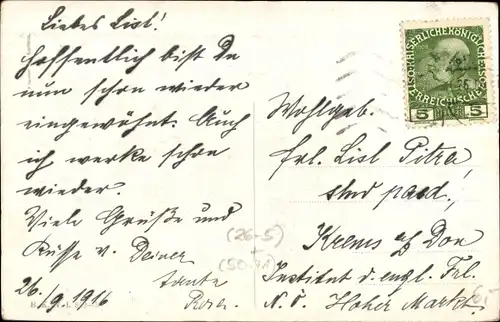 Liebes Lisl!
Hoffentlich bist Du
nun schon wieder
eingewöhnt. Auch
ich werke schon
wieder.
Viele Grüße und
Küsse v. Deiner
Tante
26./9. 1916 Rosa.
Wohlgeb.
Frl. Lisl Pitra,
stud. paed,
Krems a/d Don
Institut d. engl. Frl.
N.Ö. Hoher Markt.
(26-5)
+
5 5